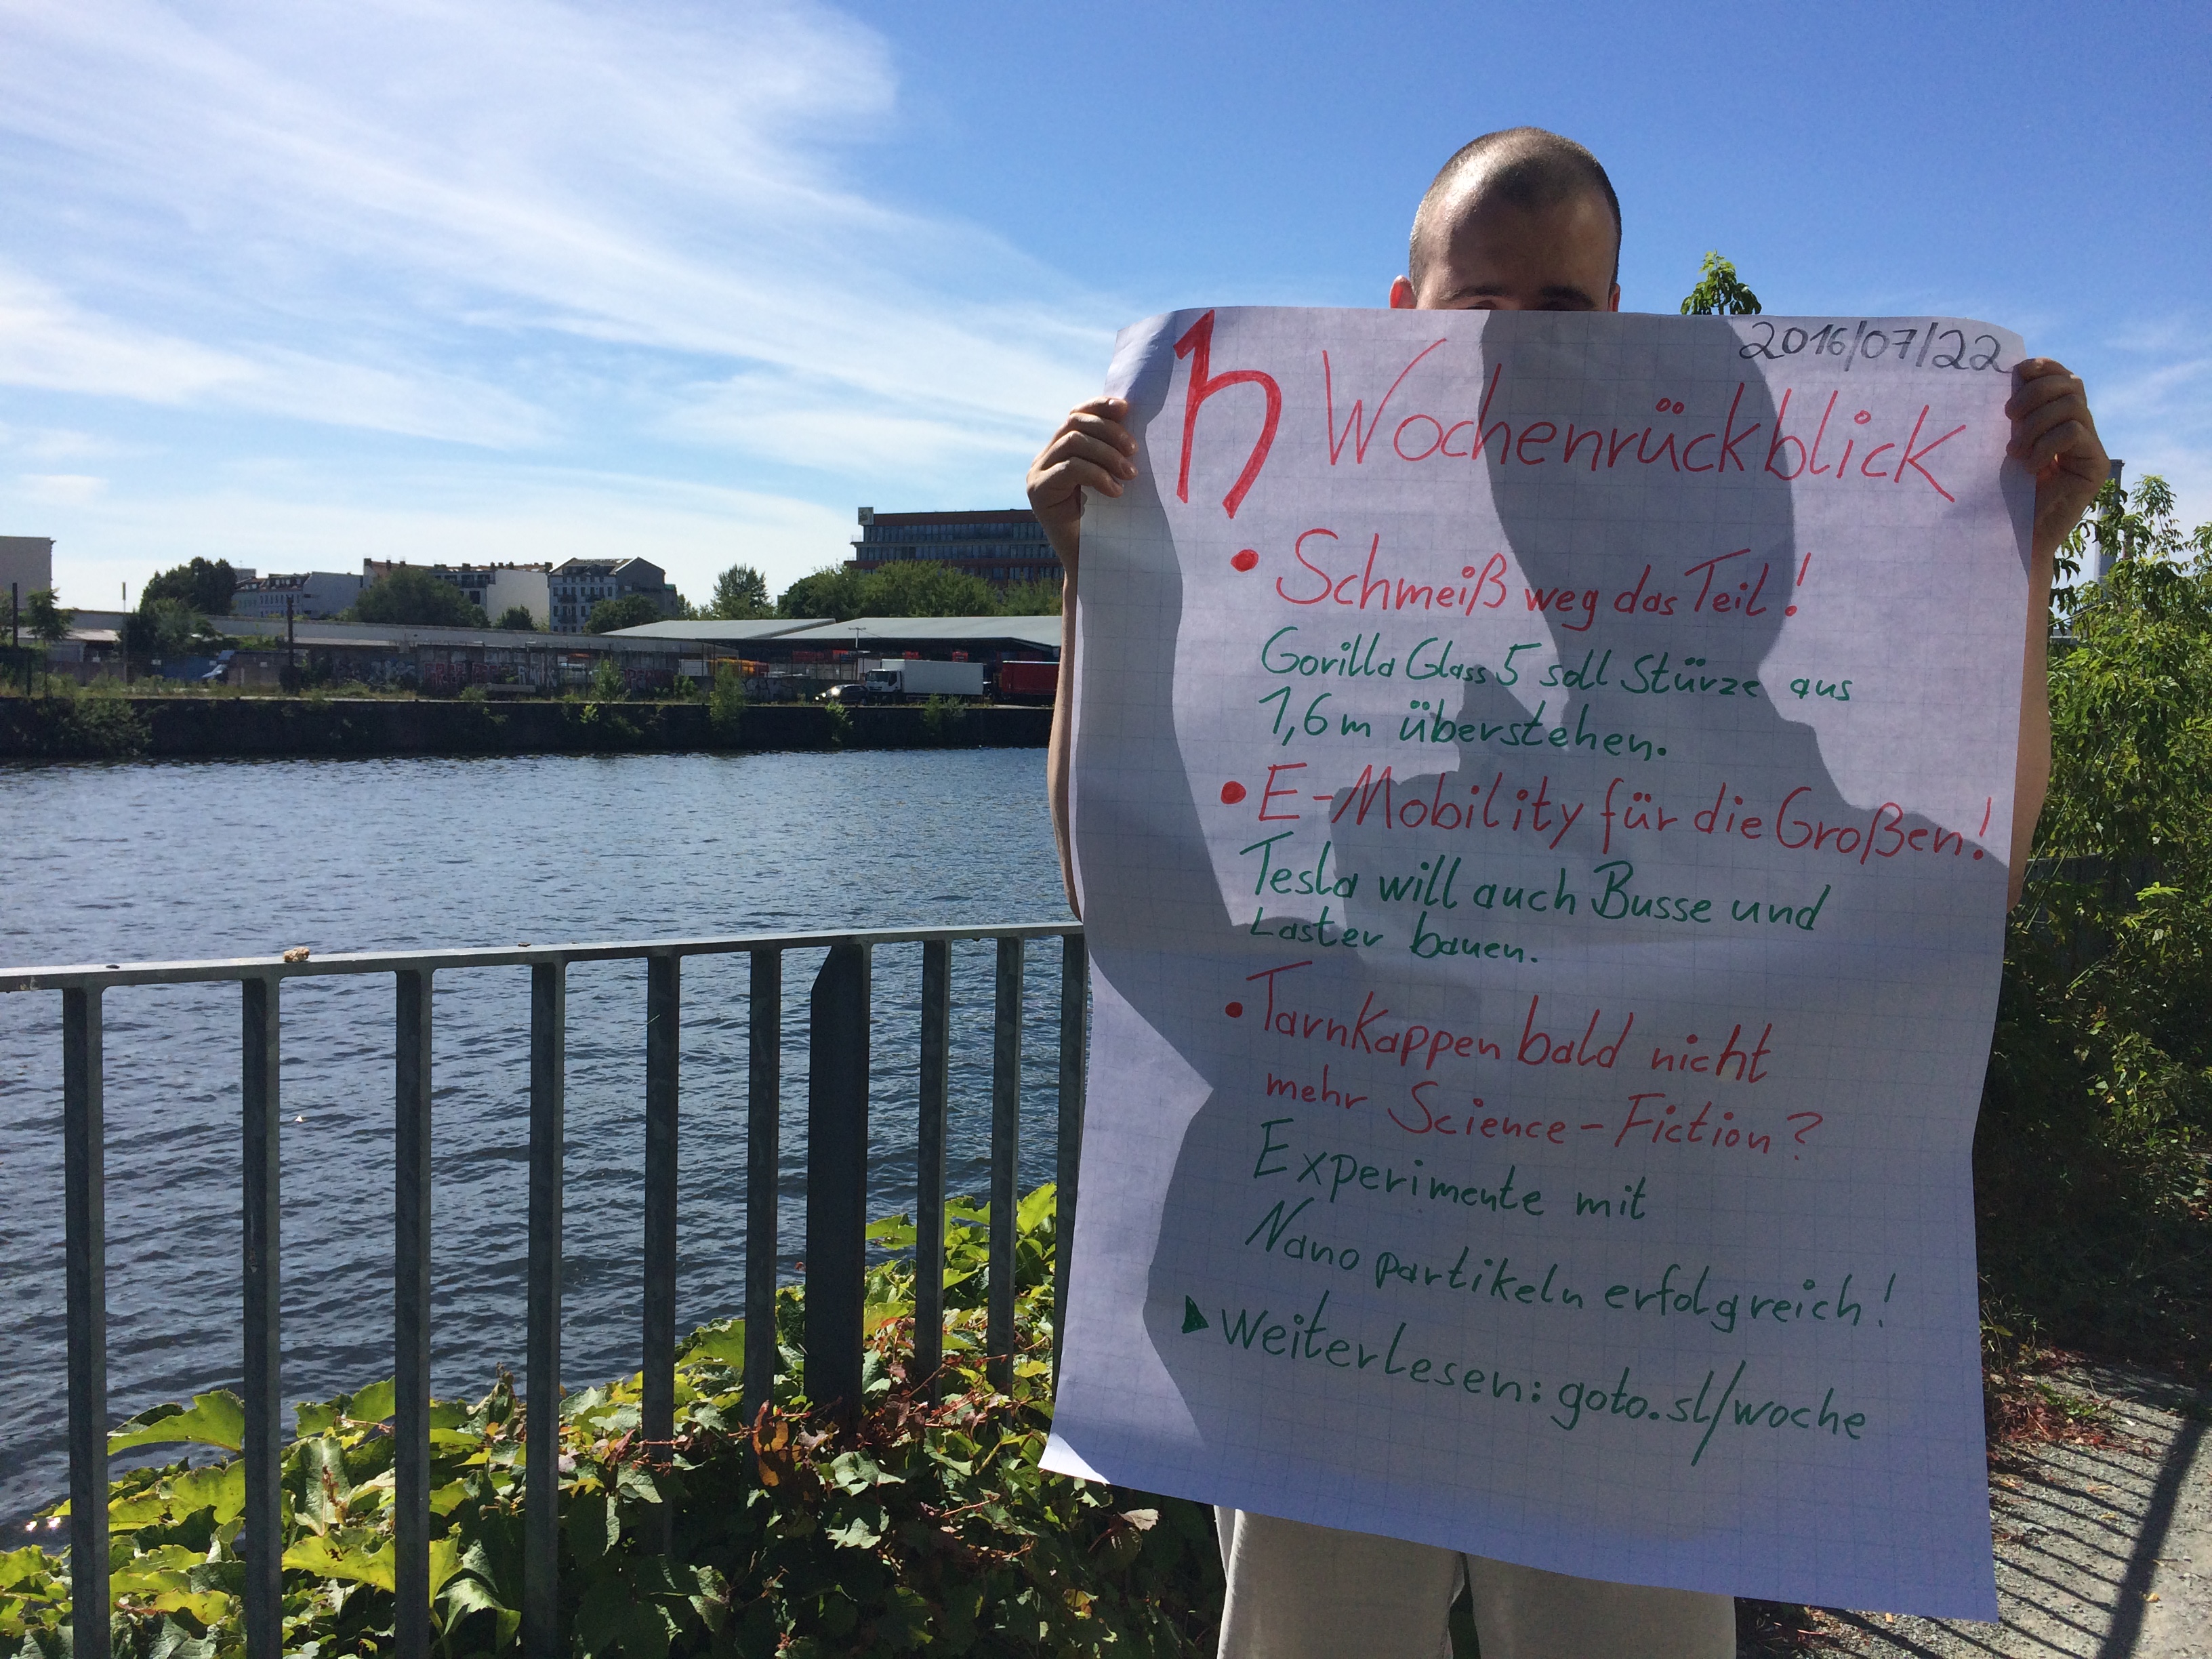 2016/07/22
h Wochenrückblick
• Schmeiß weg das Teil!
Gorilla Glass 5 soll Stürze aus
1,6m überstehen.
• E-Mobility für die Großen!
Tesla will auch Busse und
Laster bauen.
• Tarnkappen bald nicht
mehr Science-Fiction?
Experimente mit
Nanopartikeln erfolgreich!
▶ Weiterlesen: goto.sl/woche